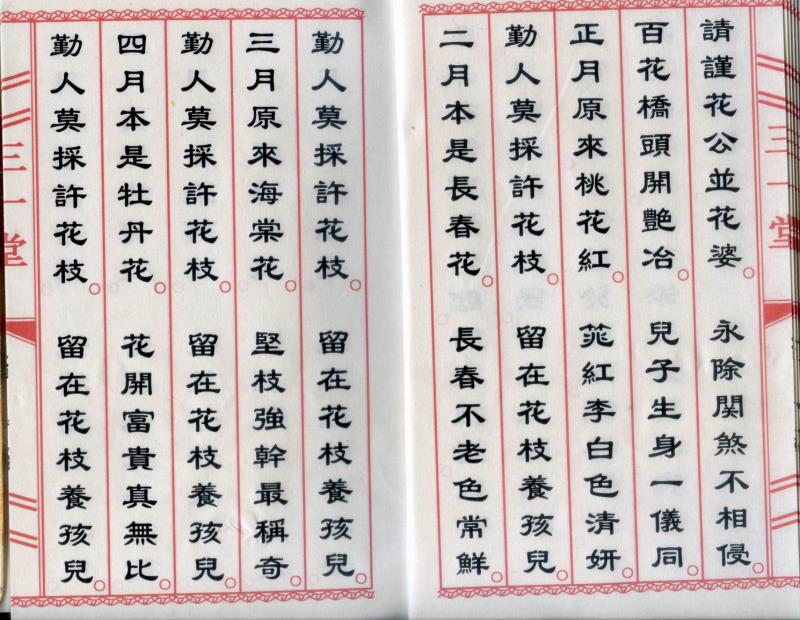 三一堂
請謹花公並花婆。永除関煞不相侵。
百花橋頭開艷冶。兒子生身一儀同。
正月原來桃花紅。紅李白色清妍。
勤人莫採許花枝。留在花枝養孩兒。
二月本是長春花。長春不老色常鮮。
勤人莫採許花枝。留在花枝養孩兒。
三月原來海棠花。堅枝強幹最稱奇。
勤人莫採許花枝。留在花枝養孩兒。
四月本是牡丹花。花開富貴真無比。
勤人莫採許花枝。留在花枝養孩兒。
三一堂